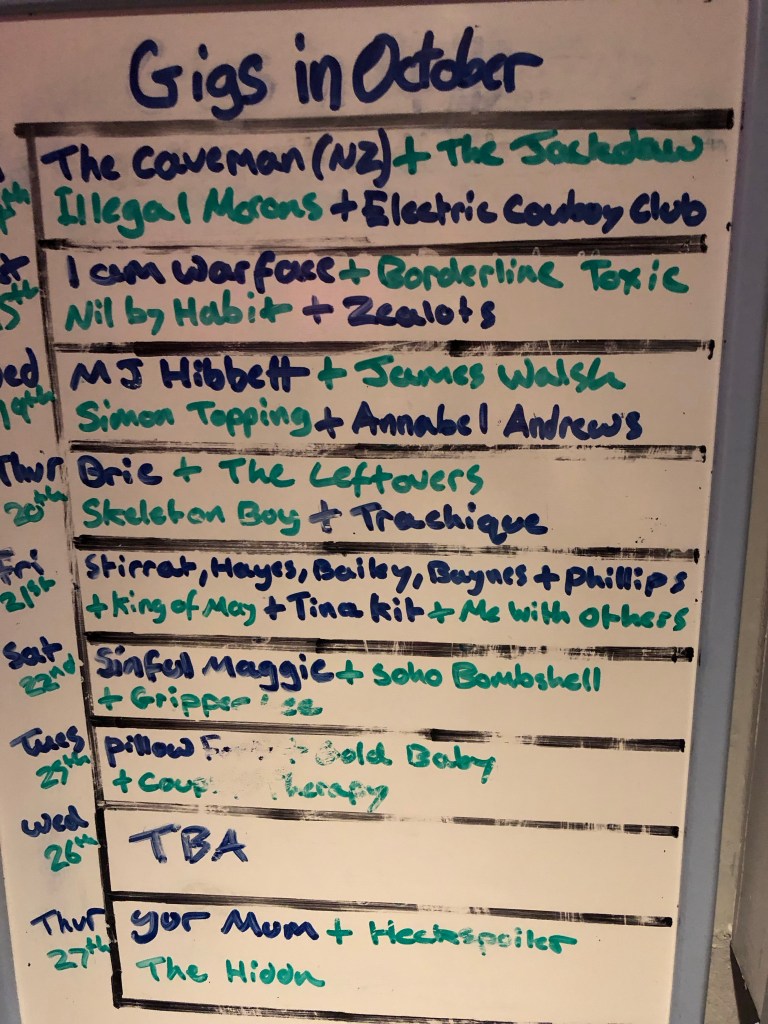 Gigs in October
The Caveman (NZ) + The Jackdaw
Illegal Morons + Electric Cowboy Club
I am Warface + Borderline Toxic
5th Nil by Habit + Zealots
ed MJ Hibbett + James Walsh
19th Simon Topping + Annabel Andrews
Thur Brie + The Leftovers
20th Skeleton Boy + Trachique
Fri Stirrat, Hayes, Bailey, Baynes + Phillips
21st + King of May + Tina kit + Me With Others
Sat Sinful Maggie + Soho Bombshell
22nd + Gripper
Tues pillow + Gold Baby
25th + Therapy
Wed
26th TBA
Thur yur Mum + Heckspoiler
27th The Hiddn